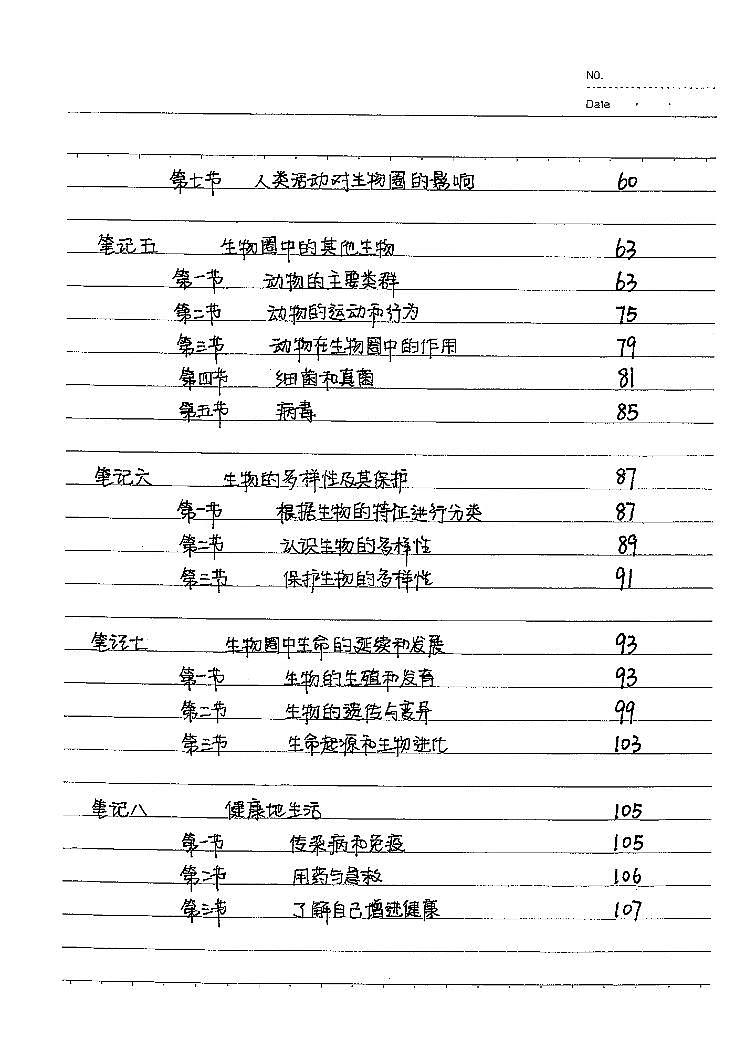 NO.
Date
第七节 人类活动对生物圈的影响 60
笔记五 生物圈中的其他生物 63
第一节 动物的主要类群 63
第二节 动物的运动和行为 75
第三节 动物在生物圈中的作用 79
第四节 细菌和真菌 81
第五节 病毒 85
笔记六 生物的多样性及其保护 87
第一节 根据生物的特征进行分类 87
第二节 认识生物的多样性 89
第三节 保护生物的多样性 91
笔记七 生物圈中生命的延续和发展 93
第一节 生物的生殖和发育 93
第二节 生物的遗传与变异 99
第三节 生命起源和生物进化 103
笔记八 健康地生活 105
第一节 传染病和免疫 105
第二节 用药与急救 106
第三节 了解自己增进健康 107